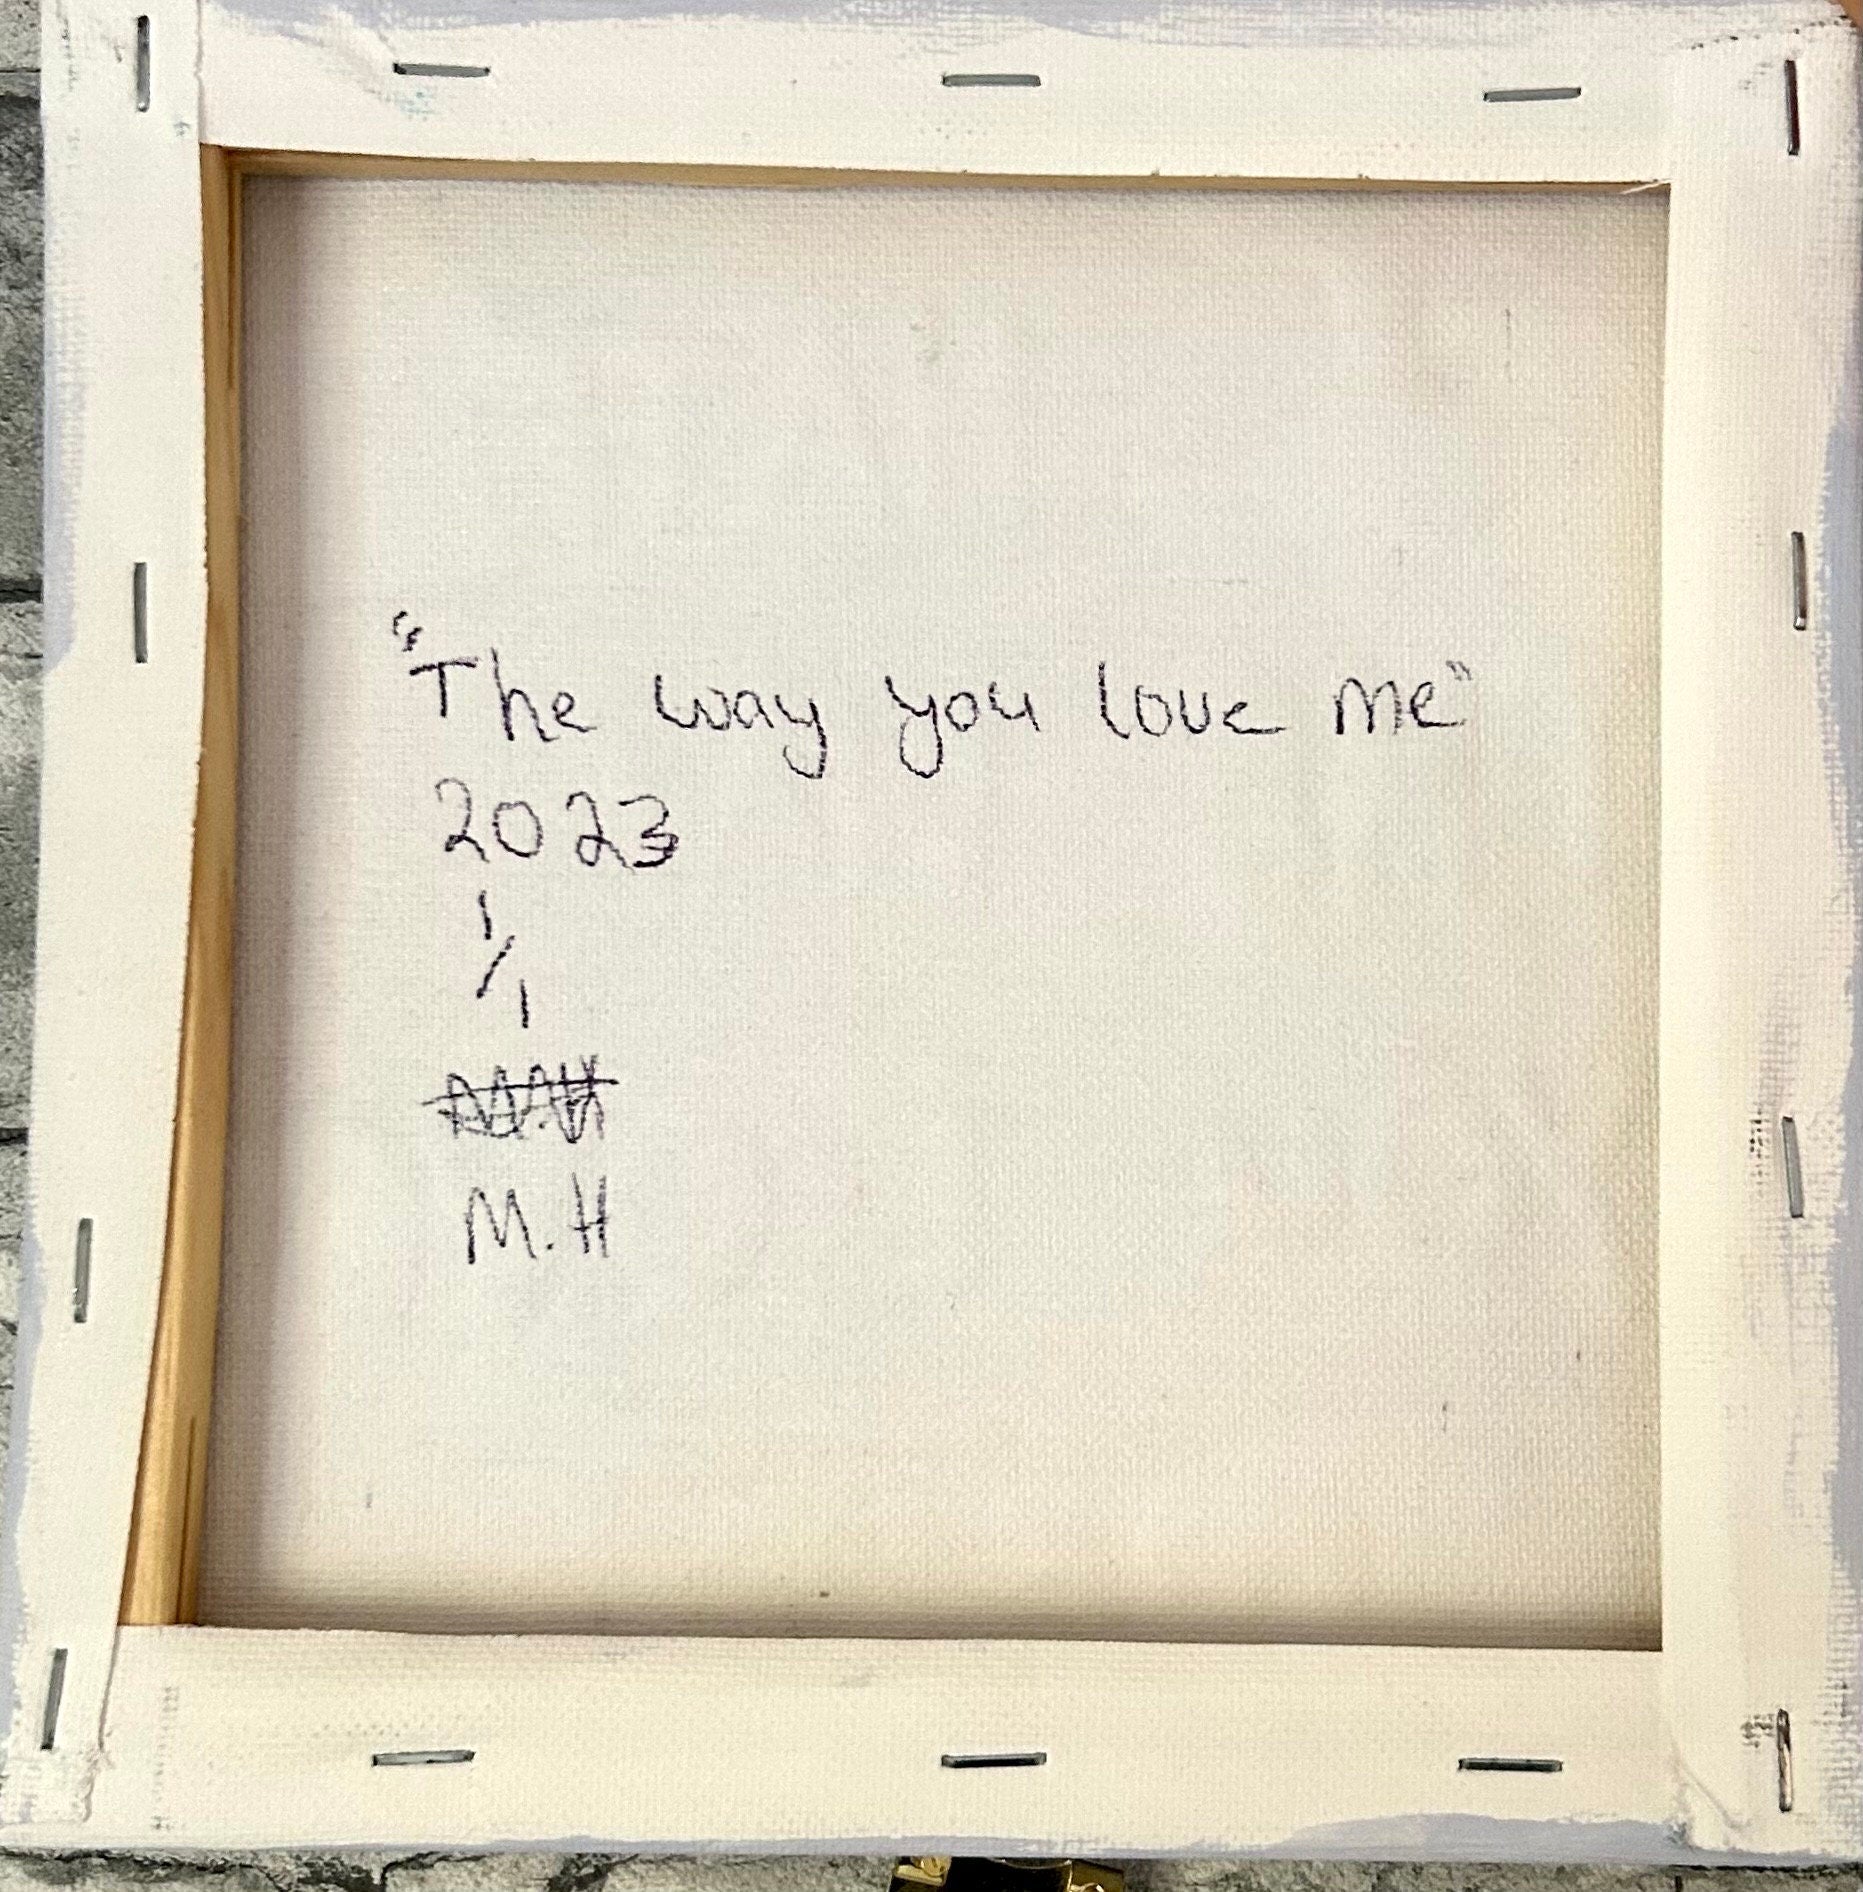 "The way you love me"
2023
1/1
M.H